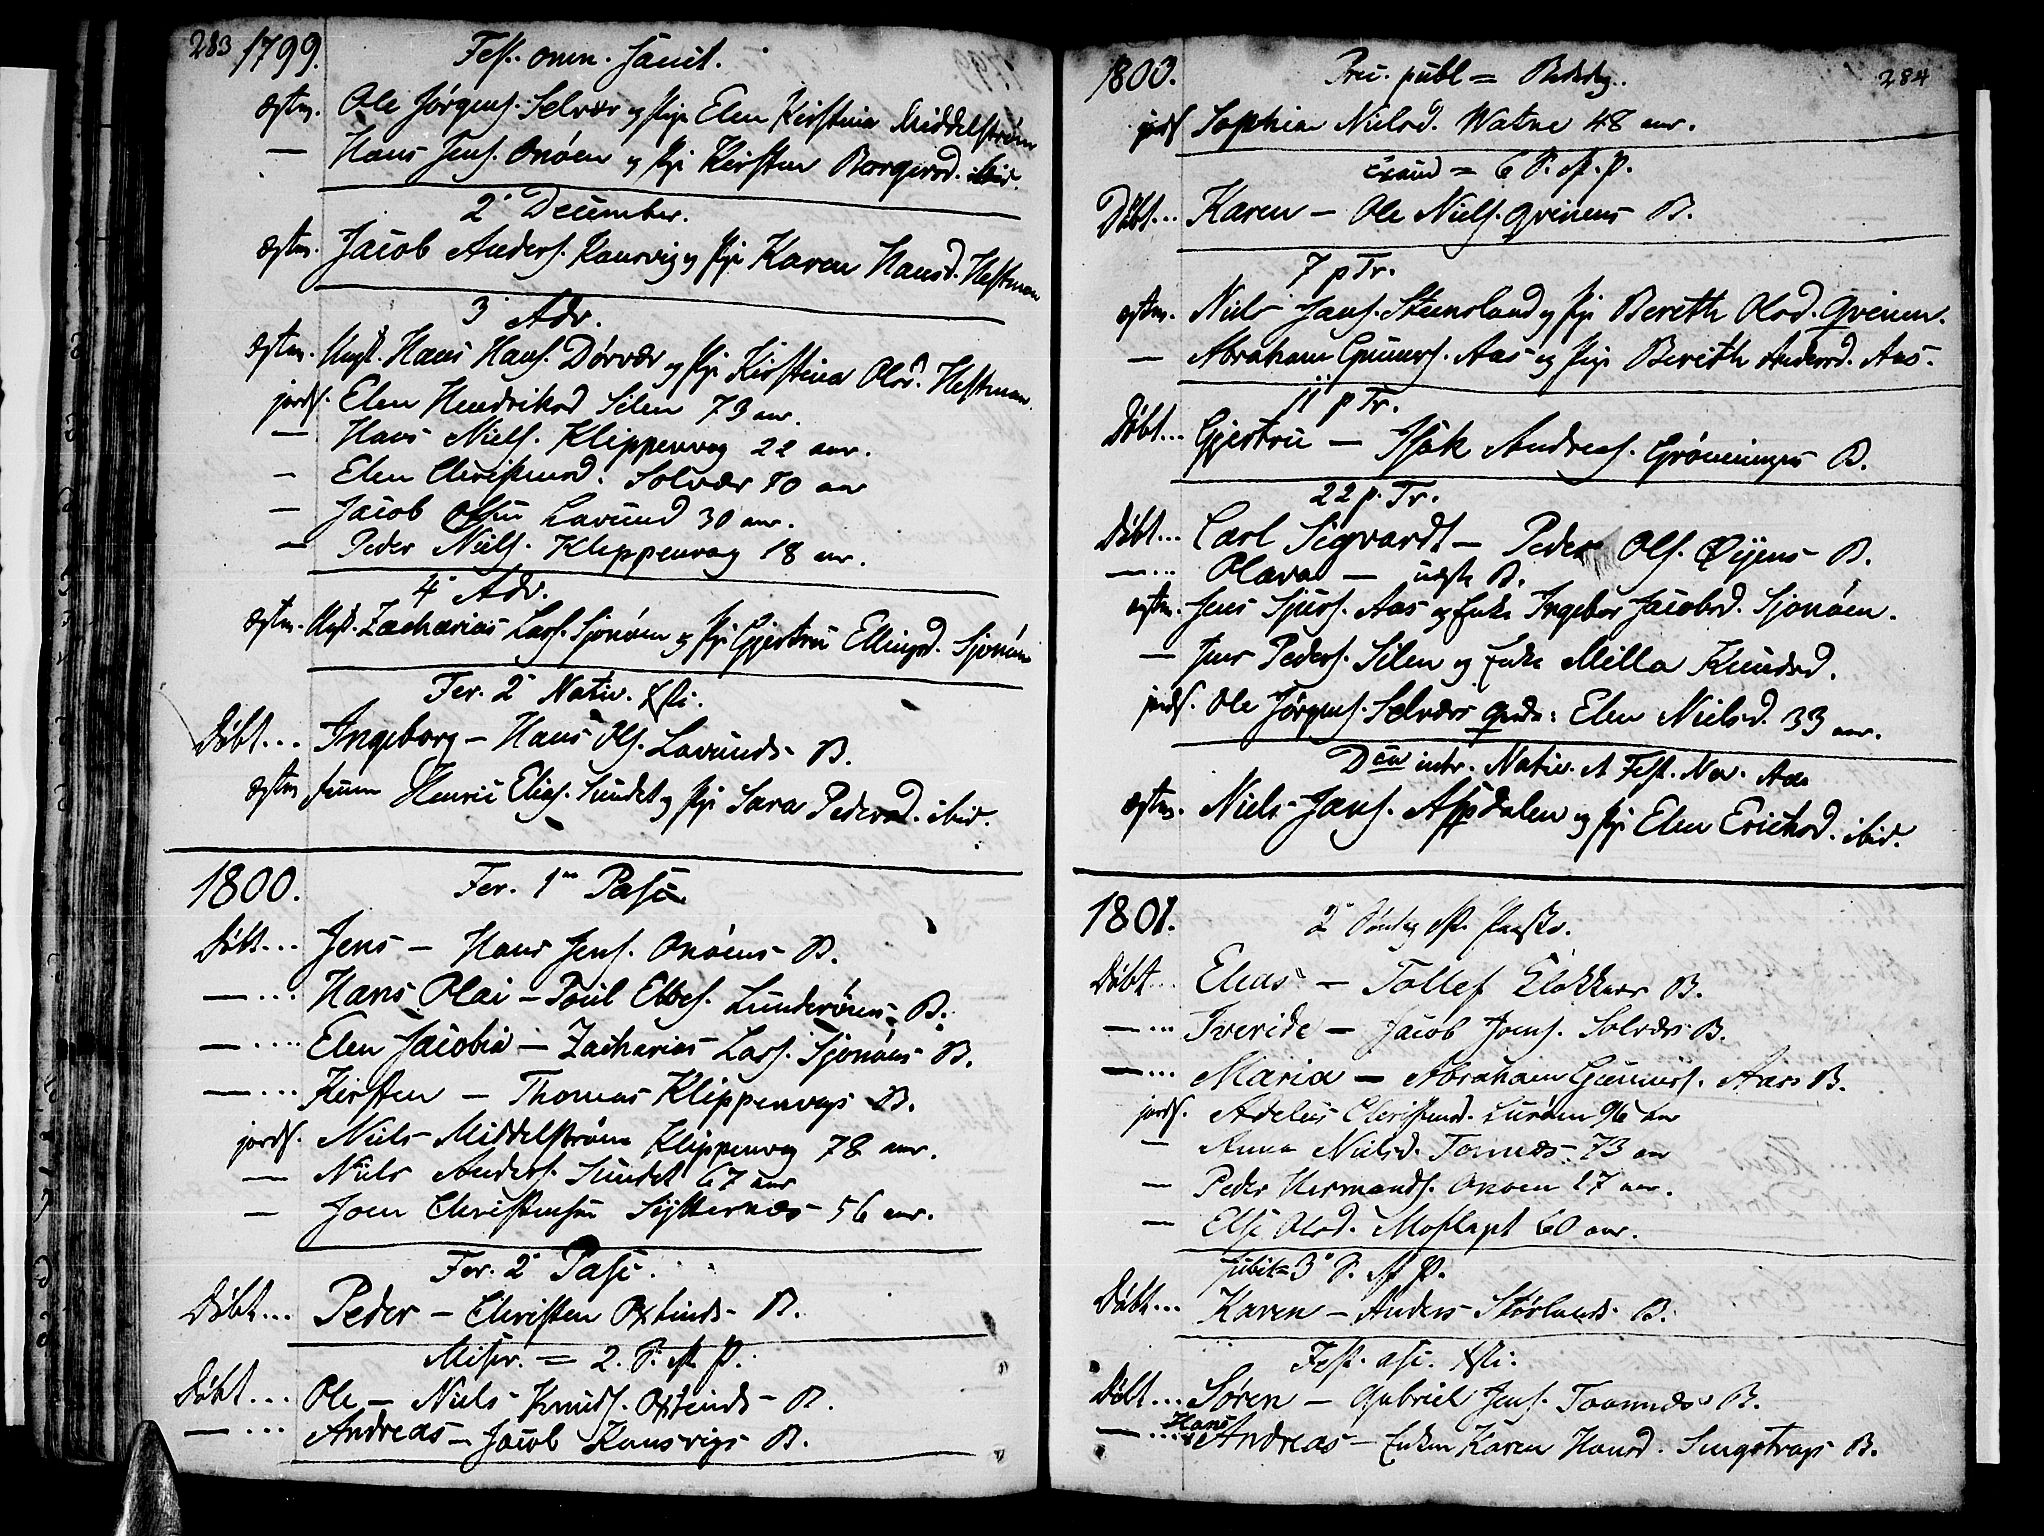 283 1799. Fest. omn. Sanct.
egtev. Ole Jørgens. Selvær og pige Elen Kirstina Middelstrøm
— Hans Jens. Onøen og pige Kirsten Borgersd. ibid.
2 December.
egtev. Jacob Anders. Kansvig og pige Karen Hansd. Hestmon
3 Adv.
egtev. Ungk. Hans Hans. Dørvær og pige Kirstina Olsd. Hestmon.
jordf. Elen Hendriksd Silen 73 aar.
— Hans Niels. Klippenvog 22 aar.
— Elen Christensd. Solvær 70 aar
— Jacob Olsen Lavund 30 aar.
— Peder Niels. Klippenvog 18 aar.
4 Adv.
egtev. Ungk. Zacharias Lars. Sjonøen og pige Gjertru Ellingsd. Sjonøen
Fer. 2 Nativ. Xsti.
Døbt... Ingeborg — Hans Ols. Lavunds B.
egtev. Henric Elias. Sundet og pige Sara Pedersd. ibid.
1800. Fer. 1 Pasc.
Døbt... Jens — Hans Jens. Onøens B.
—... Hans Olai — Poul Ebbes. Lunderøens B.
—.... Elen Jacobia — Zacharias Lars. Sjonøens B.
—... Kirsten — Thomas Klippenvogs B.
jordf. Niels Middelstrøm Klippenvog 78 aar.
— Niels Anders. Sundet 67 aar
— Joen Christensen 56 aar.
Fer. 2 Pasc.
Døbt... Peder — Christen Oxtinds B.
Miser. = 2. S. eft. P.
Døbt... Ole — Niels Knuds. Oxtinds B.
—... Andreas — Jacob Kansvigs B.
1800. publ = Bededag. 284
jordf Sophia Nielsd. Watne 48 aar.
Exaud = 6 S. eft. P.
Døbt... Karen — Ole Niels. Qvinens B.
7 p Tr.
egtev. Niels Jans. Stensland og pige Bereth Olsd. Qveinen.
— Abraham Gunners. Aas og pige Berith Andersd. Aas.
11 p Tr.
Døbt... Gjertru — Isak Andreas. Grønninges B.
22 p. Tr.
Døbt... Carl Sigvardt — Peder Ols. Øyens B.
—... Olava — uægte B.
egtev. Jens Sjurs. Aas og Enke Ingebor Jacobsd. Sjonøen.
— Jens Peders. Silen og Enke Milla Knudsd.
jordf. Ole Jørgens. Selværs Elen Nielsd. 33 aar.
Dca intr. Nativ. et Fest. Nov.
egtev. Niels Jans. Aspdalen og pige Elen Erichsd. ibid.
1801. 2 Søndag eft. Paaske.
Døbt... Elias — Tollef Klokkers B.
—... Tveride — Jacob Joens. Solværs B.
—... Maria — Abraham Gunners. Aas B.
jordf. Adelus Christensd. Lurøen 96 aar
— Anna Nielsd. Tonnes 73 aar
— Peder Hermands. Onøen 17 aar.
— Else Olsd. Moflagt 60 aar.
Jubil = 3 S. eft P.
Døbt... Karen — Anders Størlands B.
Fest. asc. Xsti.
Døbt... Søren — Gabriel Jens. Tonnes B.
—... Hans Andreas — Enken Karen Hansd. B.